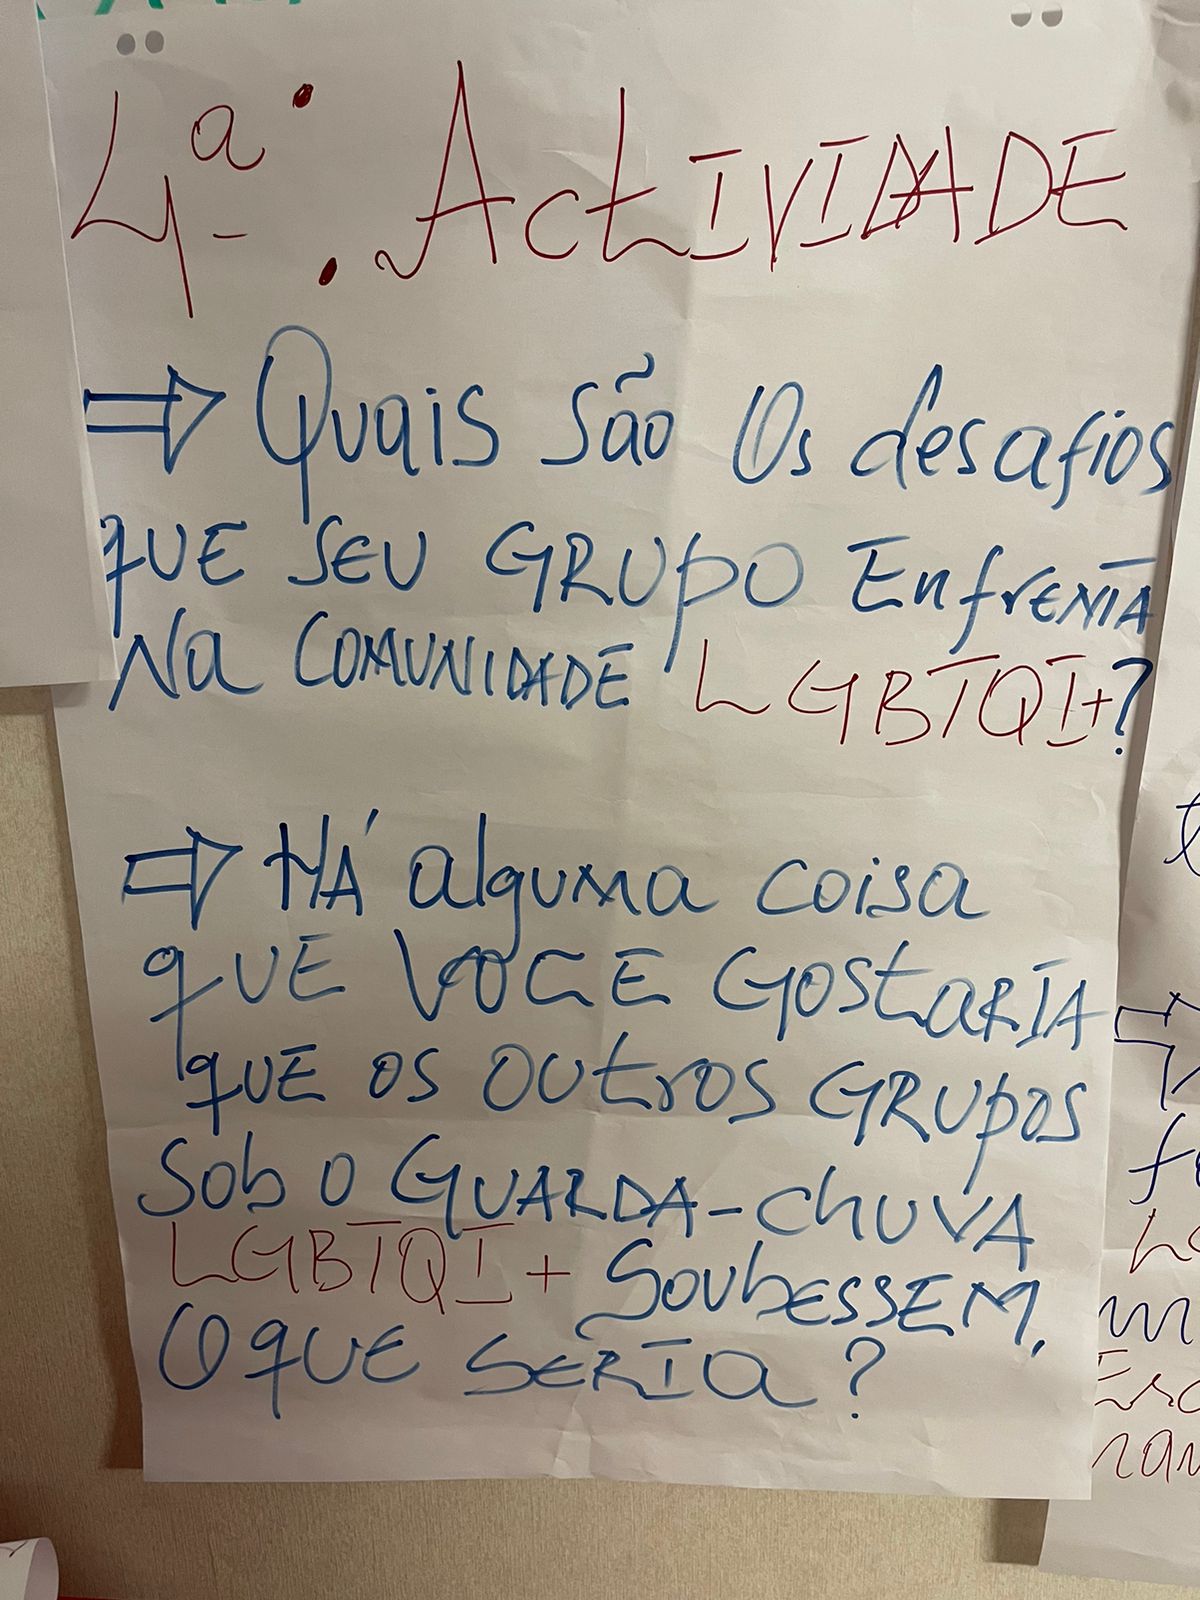 4ª: ActIVIDADE
⇒ Quais são Os desafios
que SEU GRUPO EnfrENTA
Na COMUNIDADE LGBTQI+?
⇒ HÁ alguma coisa
que VOCE GOStaRIA
que os outros GRUPOS
Sob o GUARDA-chUVA
LGBTQI+ SoubESSEM,
O que SERIa?